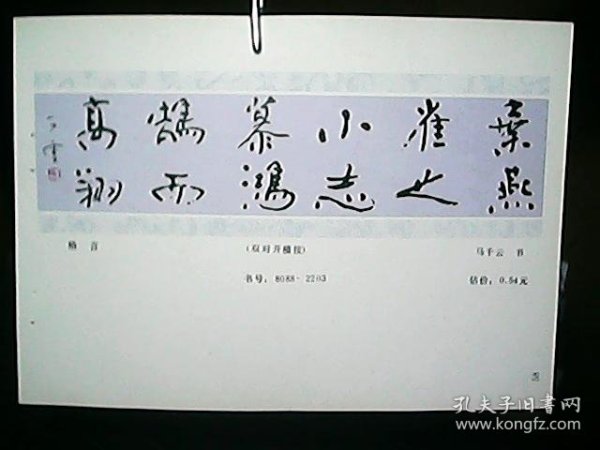 棄燕
雀之
小志
慕鴻
鵠而
高翔
格 言 (双对开横披) 马千云 书
书号：8088·2203 估价：0.54元
孔夫子旧书网
www.kongfz.com